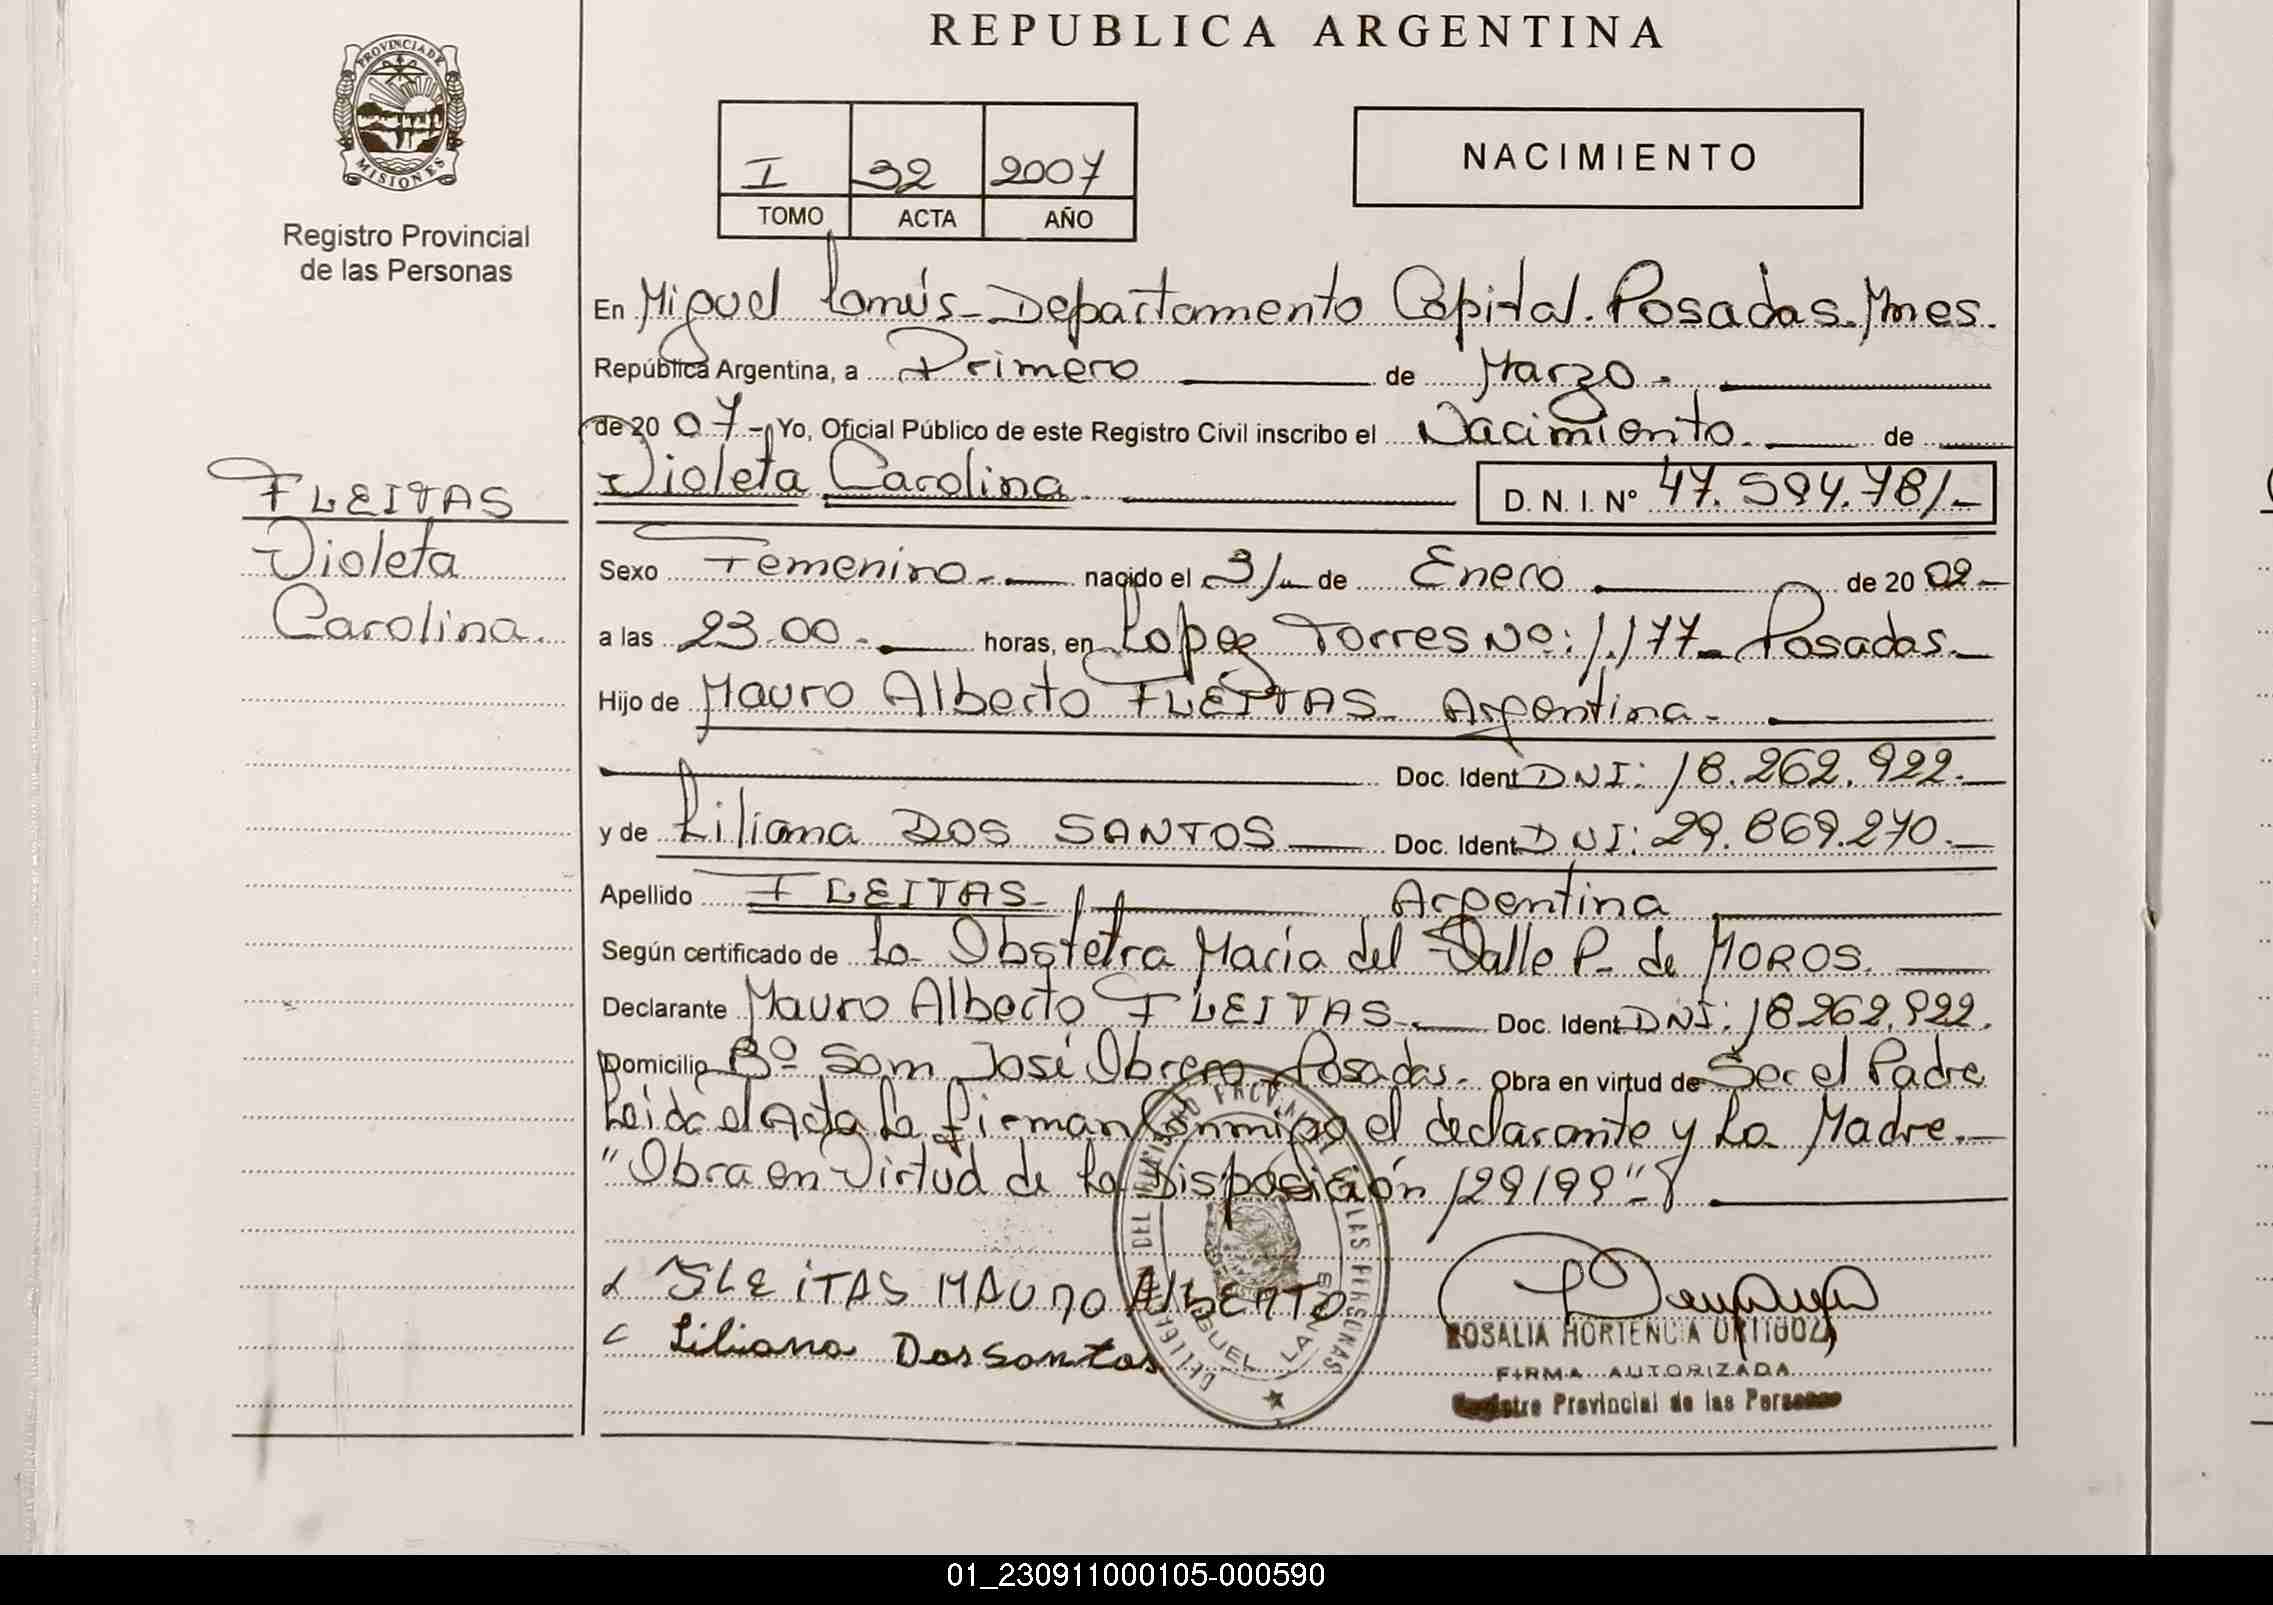 REPUBLICA ARGENTINA
PROVINCIA DE
MISIONES
Registro Provincial
de las Personas
I 32 2007
TOMO ACTA AÑO
NACIMIENTO
En Miguel Lanús - Departamento Capital. Posadas. Mnes.
República Argentina, a Primero de Marzo.
de 20 07 - Yo, Oficial Público de este Registro Civil inscribo el Nacimiento. de
Violeta Carolina D. N. I. Nº 47.594.781-
FLEITAS
Violeta
Carolina.
Sexo Femenino - nacido el 31 de Enero de 20 02 -
a las 23.00 - horas, en Lopez Torres Nº: 1.177 - Posadas.
Hijo de Mauro Alberto FLEITAS Argentina -
Doc. Ident. DNI: 18.262.922.
y de Liliana DOS SANTOS Doc. Ident. DNI: 29.869.270.
Apellido FLEITAS - Argentina
Según certificado de La Obstetra María del Valle P. de MOROS.
Declarante Mauro Alberto FLEITAS. Doc. Ident. DNI: 18262.922.
Domicilio Bº San José Obrero Posadas. Obra en virtud de Ser el Padre
Leída el Acta La firman Conmigo el declarante y La Madre.
"Obra en Virtud de La Disposición 129/99"-
FLEITAS MAURO AlbERTO
Liliana Dos Santos
DELEGA DEL REGISTRO PROVINCIAL DE LAS PERSONAS
MIGUEL LANUS
ROSALIA HORTENCIA ORTIGOZA
FIRMA AUTORIZADA
Registro Provincial de las Personas
01_230911000105-000590